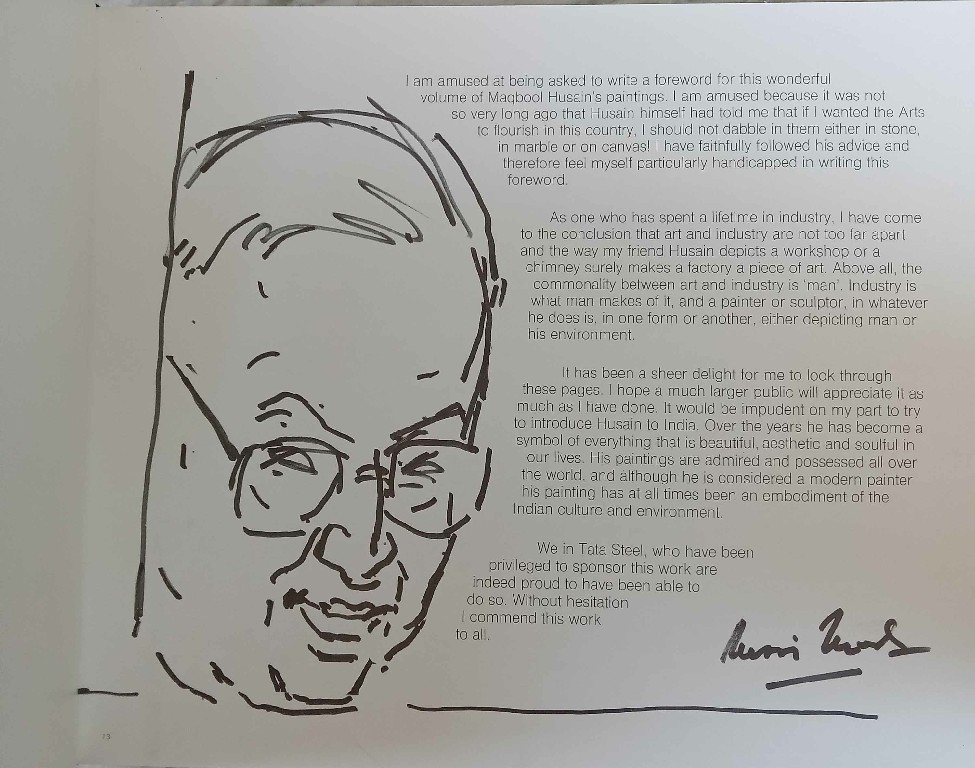 I am amused at being asked to write a foreword for this wonderful
volume of Maqbool Husain's paintings. I am amused because it was not
so very long ago that Husain himself had told me that if I wanted the Arts
to flourish in this country, I should not dabble in them either in stone,
in marble or on canvas! I have faithfully followed his advice and
therefore feel myself particularly handicapped in writing this
foreword.
As one who has spent a lifetime in industry, I have come
to the conclusion that art and industry are not too far apart
and the way my friend Husain depicts a workshop or a
chimney surely makes a factory a piece of art. Above all, the
commonality between art and industry is 'man'. Industry is
what man makes of it, and a painter or sculptor, in whatever
he does is, in one form or another, either depicting man or
his environment.
It has been a sheer delight for me to look through
these pages. I hope a much larger public will appreciate it as
much as I have done. It would be impudent on my part to try
to introduce Husain to India. Over the years he has become a
symbol of everything that is beautiful, aesthetic and soulful in
our lives. His paintings are admired and possessed all over
the world, and although he is considered a modern painter
his painting has at all times been an embodiment of the
Indian culture and environment.
We in Tata Steel, who have been
privileged to sponsor this work are
indeed proud to have been able to
do so. Without hesitation
I commend this work
to all.